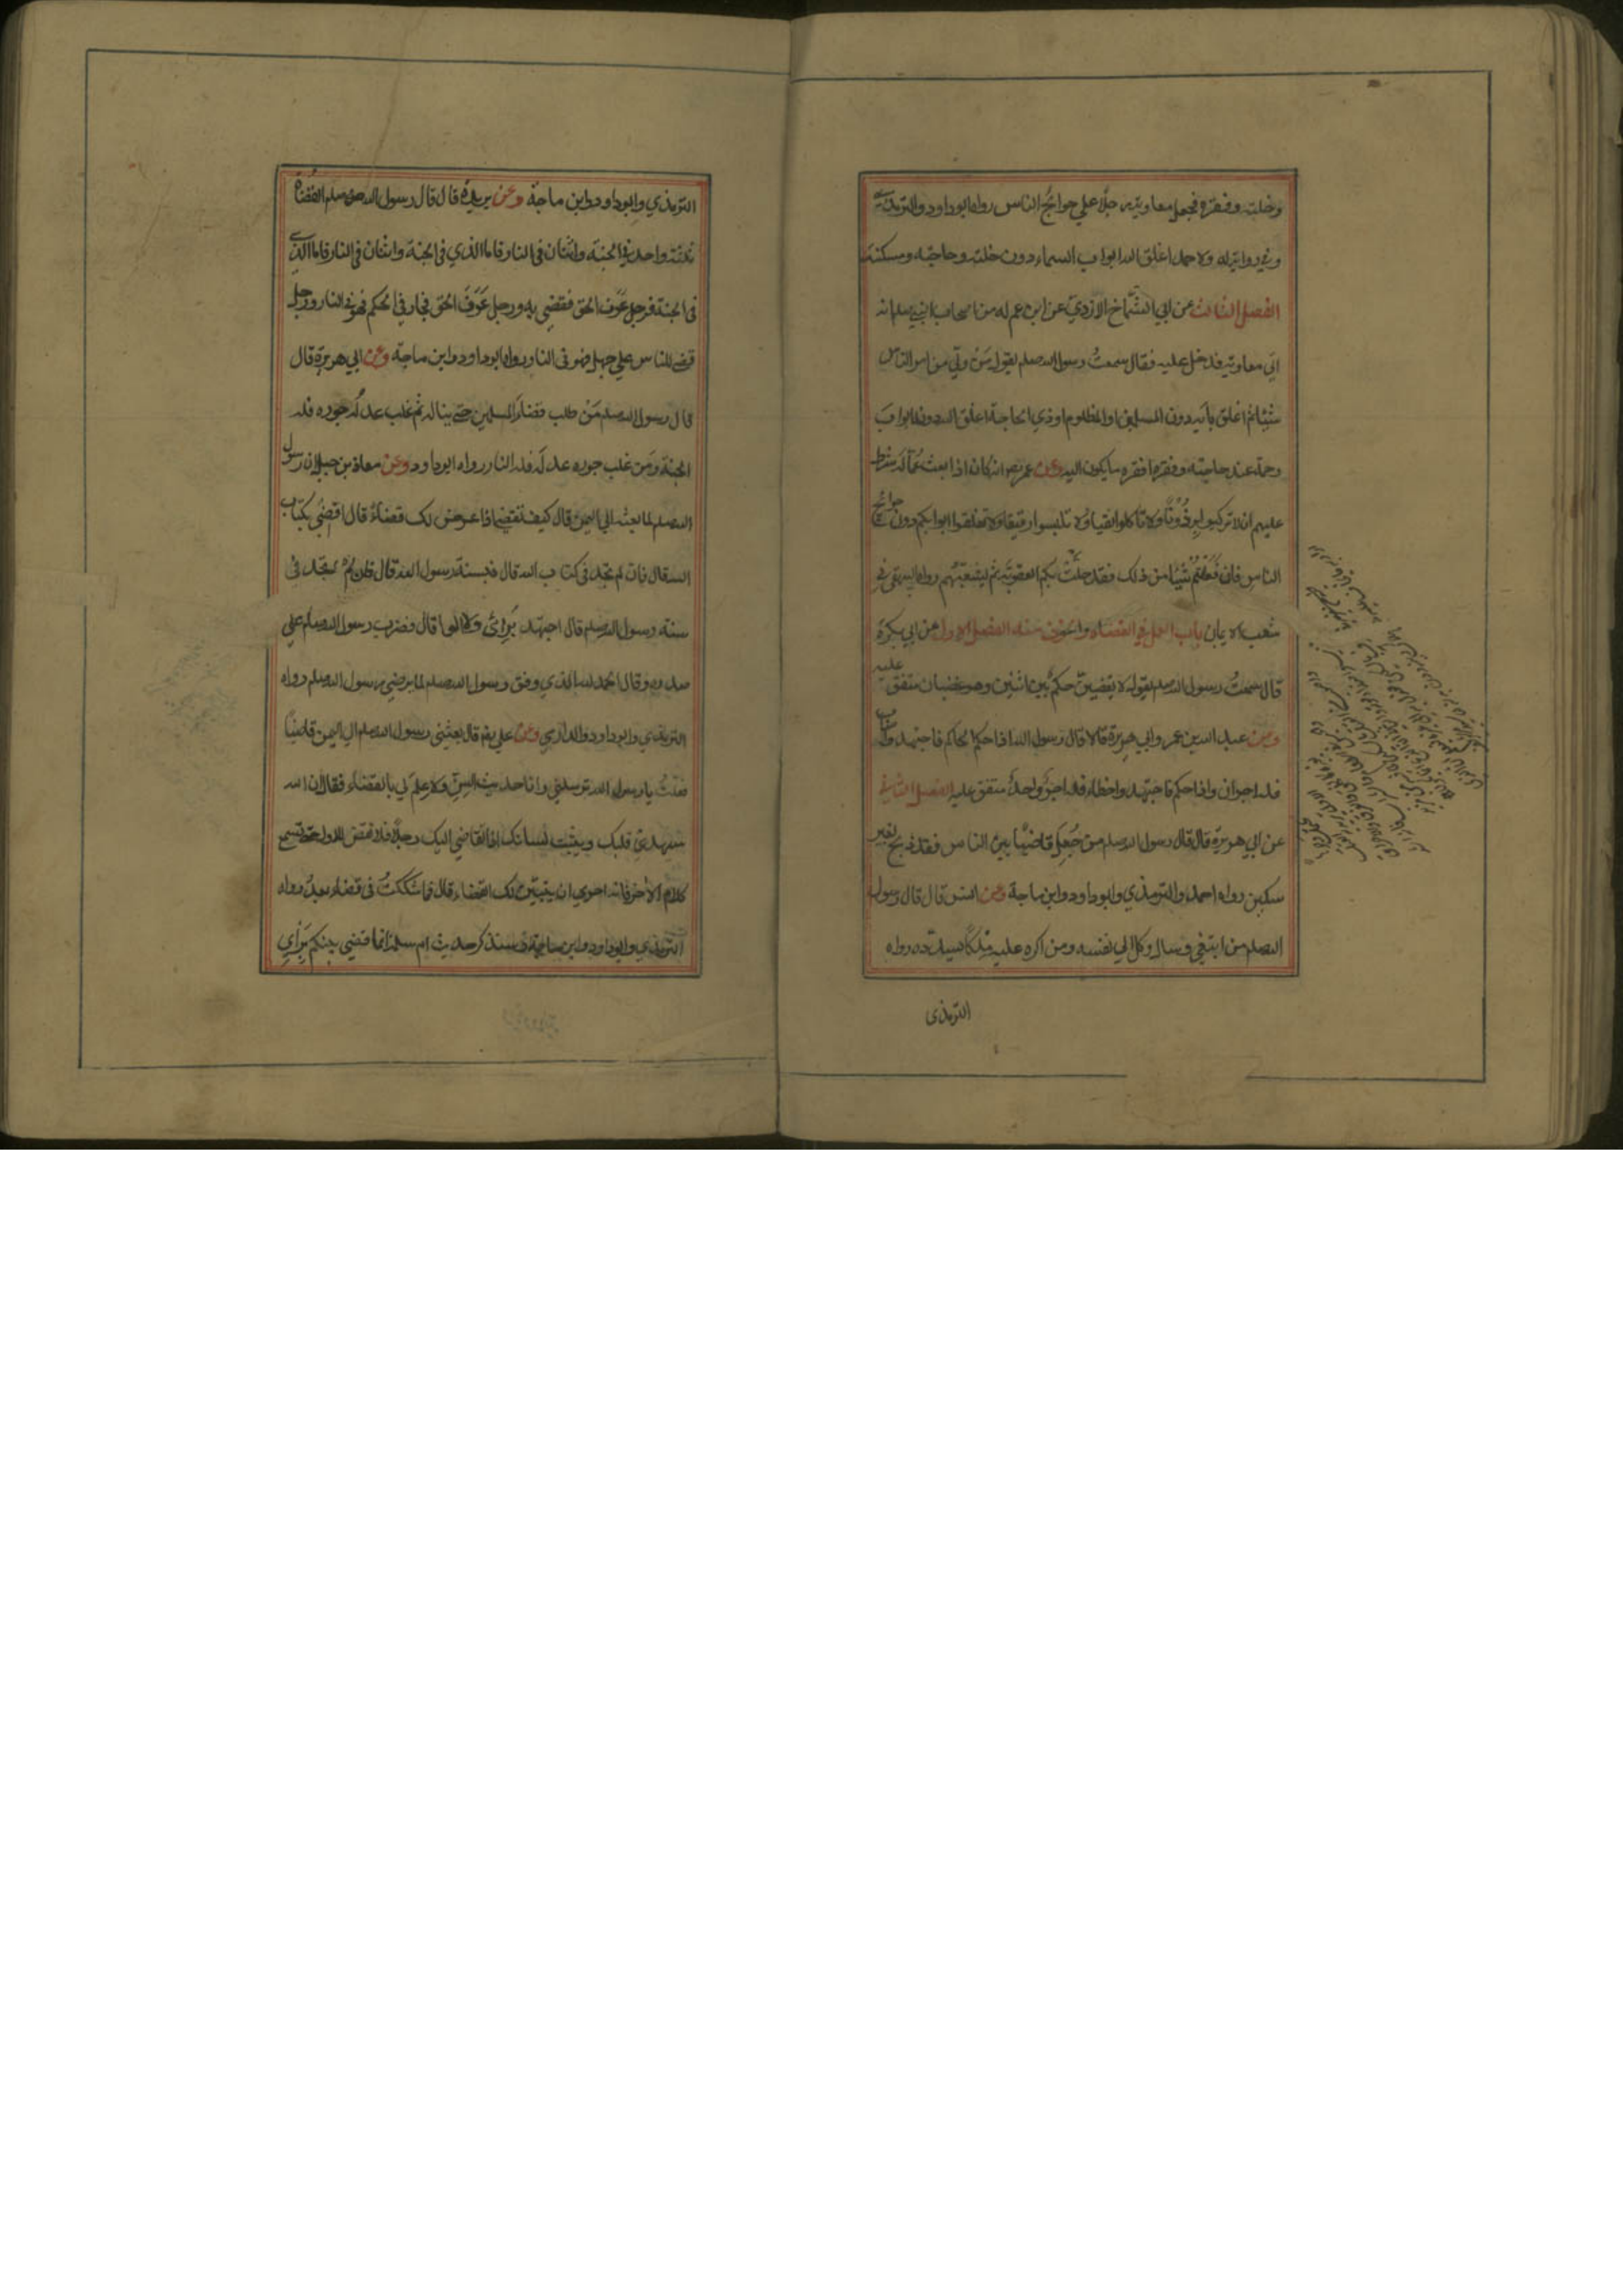 وخلته وفقره فجعل معاوية رجلا علي حوائج الناس رواه ابوداود والترمذي
وفي رواية له ولاحمد اغلق الله ابواب السماء دون خلته وحاجته ومسكنته
الفصل الثالث عن ابي الشماخ الازدي عن ابن عم له من اصحاب النبي صلعم انه
اتي معاوية فدخل عليه فقال سمعتُ رسول الله صلعم يقول مَنْ ولي من امر الناس
شيئا ثم اغلق بابه دون المسلمين او المظلوم او ذي الحاجة اغلق الله دونه ابواب
رحمته عند حاجته وفقره افقر ما يكون اليه وعن عمر رض انه كان اذا بعث عُمّاله شرط
عليهم ان لا تركبوا برذونًا ولا تاكلوا نقيا ولا تلبسوا رقيقا ولا تغلقوا ابوابكم دون حوائج
الناس فان فعلتم شيئا من ذلك فقد حلتْ بكم العقوبة ثم يشيعهم رواه البيهقي في
شعب الايمان باب العمل في القضاء والخوف منه الفصل الاول عن ابي بكرة
قال سمعتُ رسول الله صلعم يقول لا يقضينّ حكم بين اثنين وهو غضبان متفق عليه
وعن عبد الله بن عمرو وابي هريرة قالا قال رسول الله اذا حكم الحاكم فاجتهد واصاب
فله اجران واذا حكم فاجتهد واخطاء فله اجرٌ واحدٌ متفق عليه الفصل الثاني
عن ابي هريرة قال قال رسول الله صلعم من جُعِل قاضيًا بين الناس فقد ذبح بغير
سكين رواه احمد والترمذي وابوداود وابن ماجة وعن انس قال قال رسول
الله صلعم من ابتغي وسال وكل الي نفسه ومن اكره عليه ملكًا يسدده رواه
الترمذي
الترمذي وابوداود وابن ماجة وعن بريدة قال قال رسول الله صلعم القُضاة
ثلثة واحد في الجنة واثنان في النار فاما الذي في الجنة واثنان في النار فاما الذي
في الجنة فرجل عَرَف الحق فقضي به ورجل عَرَفَ الحق فجار في الحكم فهو في النار ورجل
قضي للناس علي جهل فهو في النار رواه ابوداود وابن ماجة وعن ابي هريرة قال
قال رسول الله صلعم مَنْ طلب قضاءَ المسلمين حتي يناله ثم غلب عدلُه جوره فله
الجنة ومَن غلب جوره عدلَه فله النار رواه ابوداود وعن معاذ بن جبل ان رسول
الله صلعم لما بعثه الي اليمن قال كيف تقضي اذا عرض لك قضاءٌ قال اقضي بكتاب
الله قال فان لم تجد في كتاب الله قال فبسنة رسول الله قال فان لم تجد في
سنة رسول الله صلعم قال اجتهد برائي ولا الوا قال فضرب رسول الله صلعم علي
صدره وقال الحمد لله الذي وفق رسول رسول الله صلعم لما يرضي به رسول الله صلعم رواه
الترمذي وابوداود والدارمي وعن علي رض قال بعثني رسول الله صلعم الي اليمن قاضيًا
فقلتُ يا رسول الله ترسلني وانا حديث السِنّ ولا علم لي بالقضاء فقال ان الله
سيهدي قلبك ويثبت لسانك اذا تقاضي اليك رجلان فلا تقض للاول حتي تسمع
كلام الاخر فانه احري ان يتبيّن لك القضاء قال فما شككتُ في قضاء بعدُ رواه
الترمذي وابوداود وابن ماجة وسنذكر حديث ام سلمة انما اقضي بينكم برَأيِ